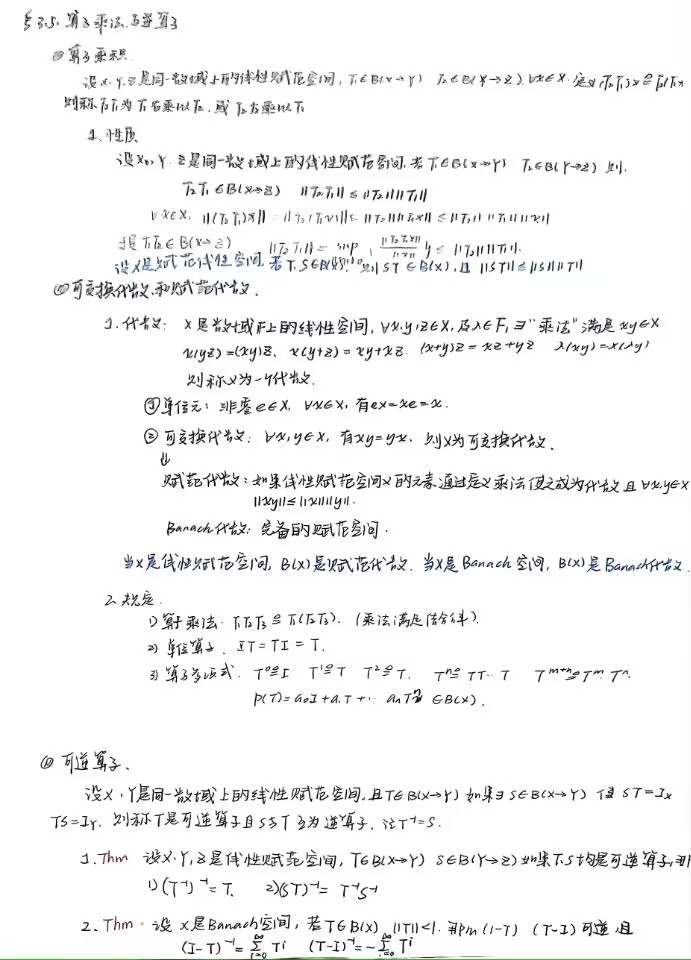 §3.5. 算子乘法与逆算子
① 算子乘积
设X.Y.Z是同一数域上的线性赋范空间, T₁∈B(X→Y) T₂∈B(Y→Z), ∀x∈X. 定义(T₂T₁)x≜T₂(T₁x
则称T₂T₁为T₁右乘以T₂. 或T₂左乘以T₁
1. 性质
设X, Y. Z是同一数域上的线性赋范空间, 若T₁∈B(X→Y) T₂∈B(Y→Z) 则.
T₂T₁∈B(X→Z) ||T₂T₁||≤||T₂||||T₁||
∀x∈X, ||(T₂T₁)x||=||T₂(T₁x)||≤||T₂||||T₁x||≤||T₂||||T₁||||x||
于是T₁T₂∈B(X→Z) ||T₂T₁||=sup{||T₂T₁x||/||x||}≤||T₂||||T₁||.
设X是赋范线性空间, 若T.S∈B(X), 则ST∈B(X), 且||ST||≤||S||||T||
② 可交换代数.和赋范代数.
1.代数: X是数域F上的线性空间, ∀x.y.z∈X, 及λ∈F, ∃"乘法"满足xy∈X
x(yz)=(xy)z. x(y+z)=xy+xz. (x+y)z=xz+yz λ(xy)=x(λy)
则称X为一个代数.
① 单位元: 非零e∈X, ∀x∈X, 有ex=xe=x.
② 可交换代数: ∀x,y∈X, 有xy=yx, 则X为可交换代数.
⇓
赋范代数: 如果线性赋范空间X的元素通过定义乘法使之成为代数且∀x,y∈X
||xy||≤||x||||y||.
Banach代数: 完备的赋范空间.
当X是线性赋范空间, B(X)是赋范代数. 当X是Banach空间, B(X)是Banach代数.
2. 规定.
1) 算子乘法. T₁T₂T₃≜T₁(T₂T₃). (乘法满足结合律).
2) 单位算子. IT=TI=T.
3) 算子多项式. T⁰≜I T¹≜T T²≜T. Tⁿ≜TT…T Tᵐ⁺ⁿ≜Tᵐ.Tⁿ.
P(T)=a₀I+a₁T+…aₙTⁿ ∈B(X).
① 可逆算子.
设X.Y是同一数域上的线性赋范空间, 且T∈B(X→Y) 如果∃S∈B(X→Y) 使ST=Iₓ
TS=Iᵧ. 则称T是可逆算子且S与T互为逆算子. 记T⁻¹=S.
1.Thm 设X.Y,Z是线性赋范空间, T∈B(X→Y) S∈B(Y→Z) 如果T.S均是可逆算子, 那
1) (T⁻¹)⁻¹=T. 2)(ST)⁻¹=T⁻¹S⁻¹
2.Thm. 设X是Banach空间, 若T∈B(X) ||T||<1. 那么(I-T) (T-I) 可逆且
(I-T)⁻¹=∑_{i=0}^∞ Tⁱ (T-I)⁻¹=-∑_{i=0}^∞ Tⁱ